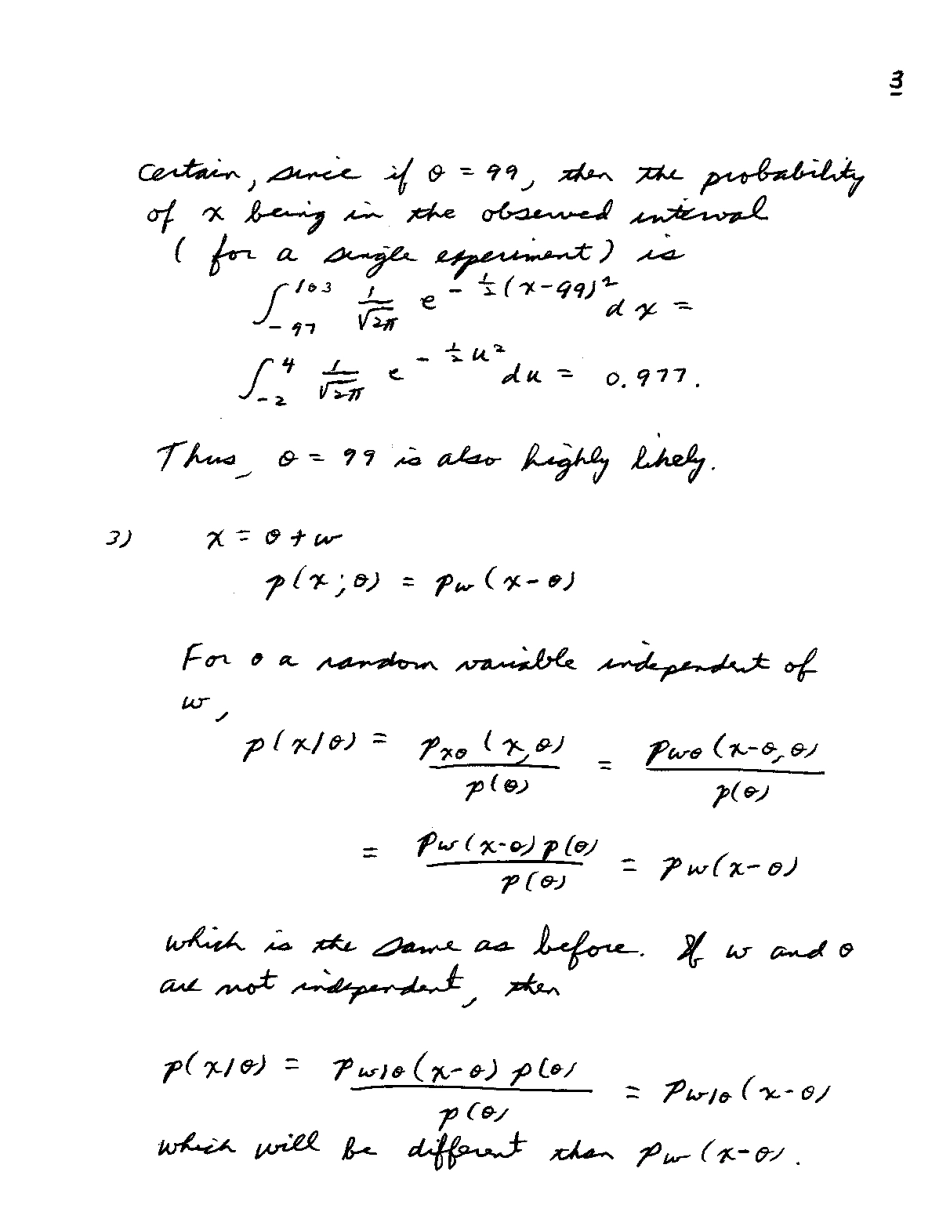 3
certain, since if θ = 99, then the probability
of x being in the observed interval
( for a single experiment) is
∫_{-97}^{103} 1/√2π e^{-½(x-99)²} dx =
∫_{-2}^{4} 1/√2π e^{-½u²} du = 0.977.
Thus, θ = 99 is also highly likely.
3) x = θ + w
p(x;θ) = p_w(x-θ)
For θ a random variable independent of
w,
p(x|θ) = p_{xθ}(x,θ)/p(θ) = p_{wθ}(x-θ,θ)/p(θ)
= p_w(x-θ)p(θ)/p(θ) = p_w(x-θ)
which is the same as before. If w and θ
are not independent, then
p(x|θ) = p_{w|θ}(x-θ) p(θ)/p(θ) = p_{w|θ}(x-θ)
which will be different than p_w(x-θ).